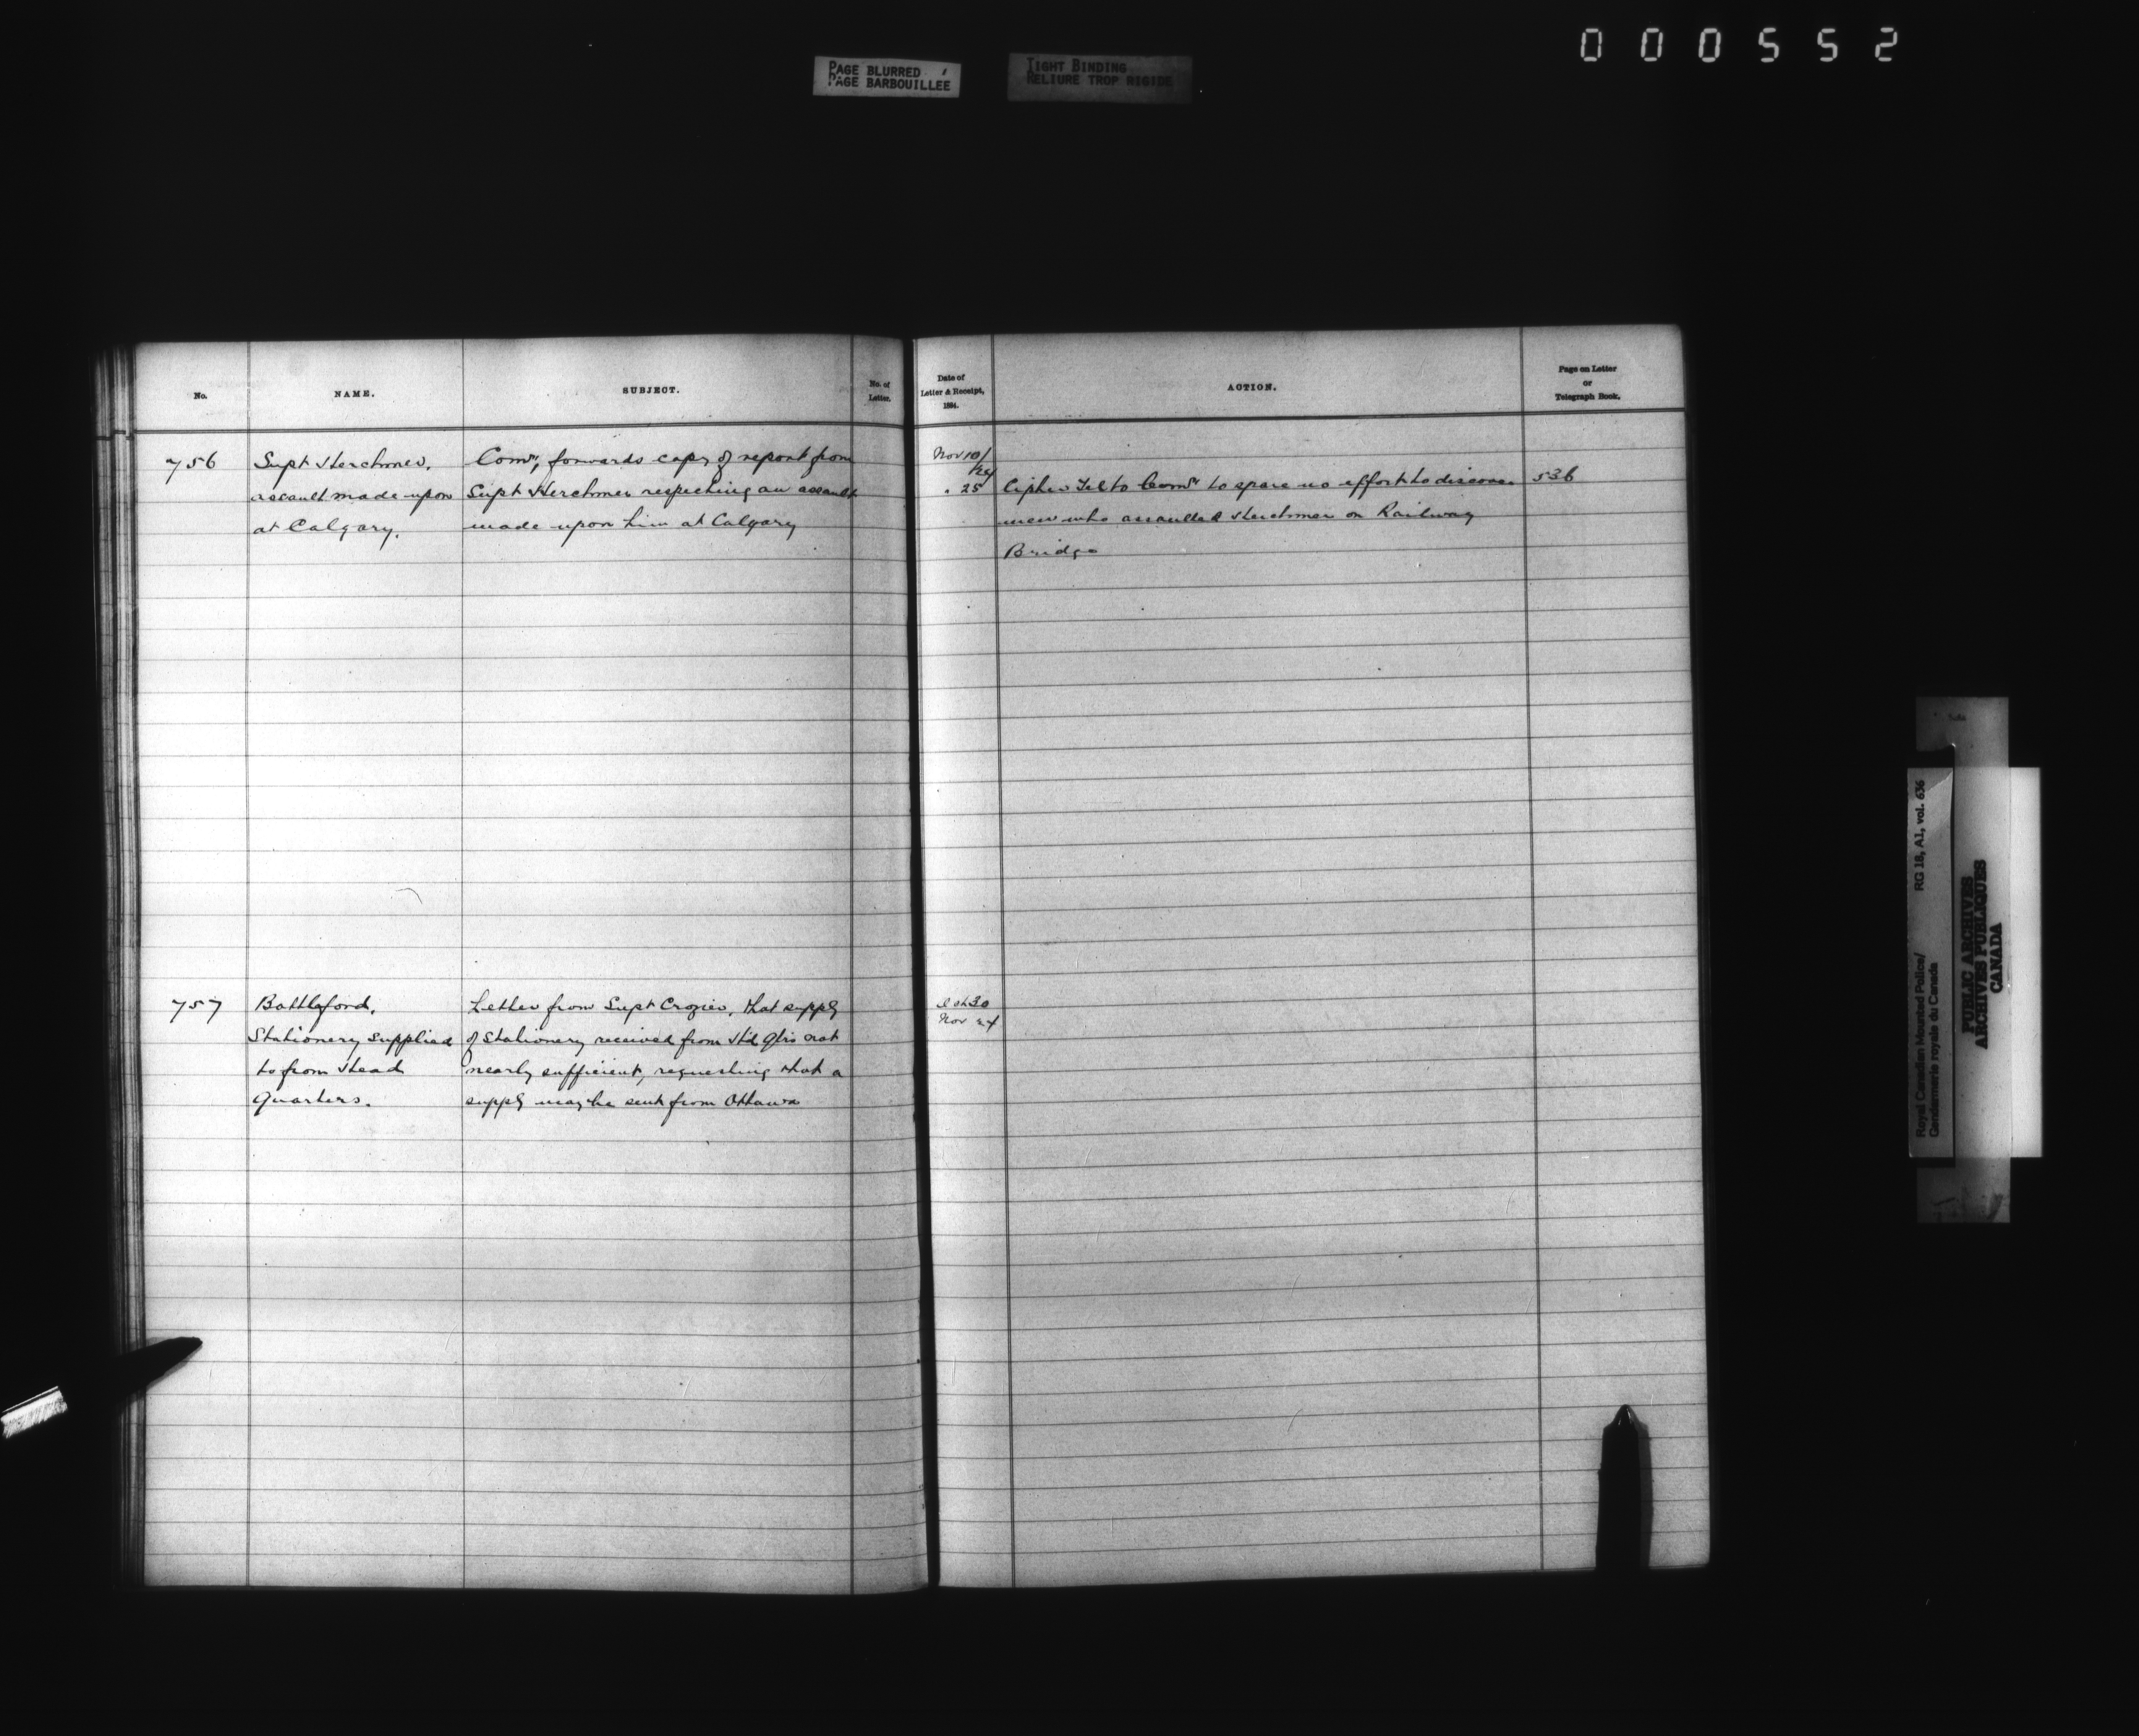 000552
PAGE BLURRED
PAGE BARBOUILLEE
TIGHT BINDING
RELIURE TROP RIGIDE
No.
NAME.
SUBJECT.
No. of
Letter.
Date of
Letter & Receipt,
1884.
ACTION.
Page on Letter
or
Telegraph Book.
756
Supt Herchmer,
assault made upon
at Calgary.
Comr, forwards copy of report from
Supt Herchmer respecting an assault
made upon him at Calgary
Nov 10/
24
" 25
Cipher Tel to Comr to spare no effort to discover
men who assaulted Herchmer on Railway
Bridge
536
757
Battleford,
Stationery Supplied
to from Head
Quarters.
Letter from Supt Crozier, that supply
of Stationery received from Hd Qtrs not
nearly sufficient, requesting that a
supply may be sent from Ottawa
Oct 30
Nov 24
Royal Canadian Mounted Police/
Gendarmerie royale du Canada
RG 18, A1, vol. 636
PUBLIC ARCHIVES
ARCHIVES PUBLIQUES
CANADA